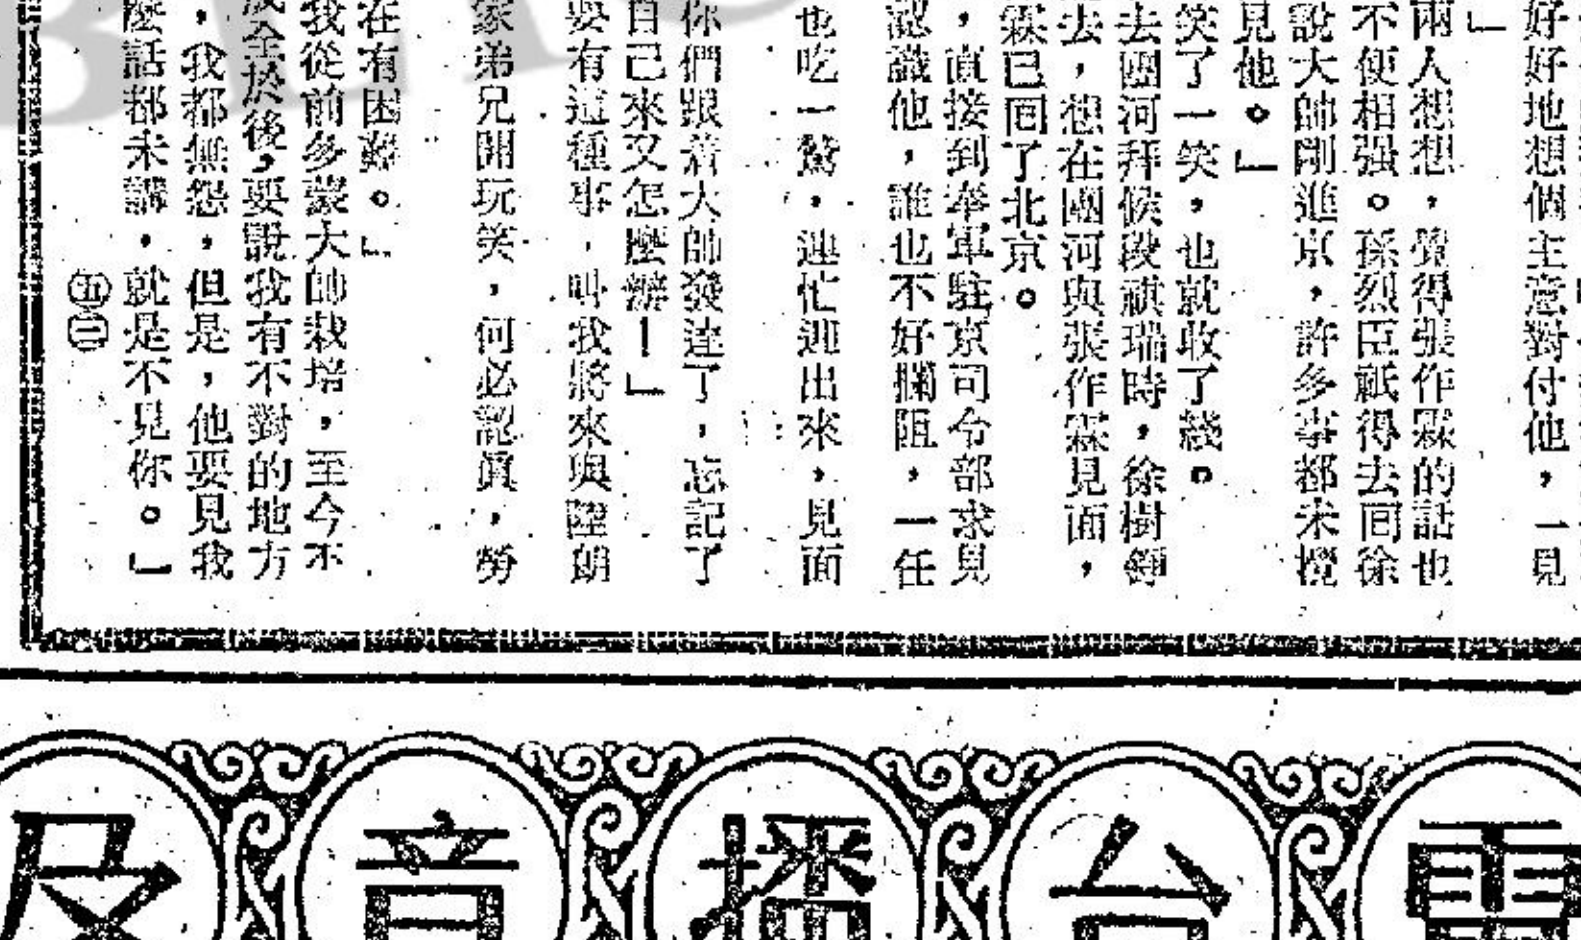 好好地想個主意對付他，一見
」
兩人想想，覺得張作霖的話也
不便相强。孫烈臣祇得去回徐
說大帥剛進京，許多事都未攪
見他。」
笑了一笑，也就收了綫。
去團河拜候段祺瑞時，徐樹錚
去，想在團河與張作霖見面，
霖已回了北京。
，直接到奉軍駐京司令部求見
認識他，誰也不好攔阻，一任
也吃一驚，連忙迎出來，見面
你們跟着大帥發達了，忘記了
自己來又怎麼辦！」
要有這種事，叫我將來與陸朗
家弟兄開玩笑，何必認眞，勞
在有困難。」
我從前多蒙大帥栽培，至今不
成全於後，要說我有不對的地方
，我都無怨，但是，他要見我
麼話都未講，就是不見你。」
電台播音及